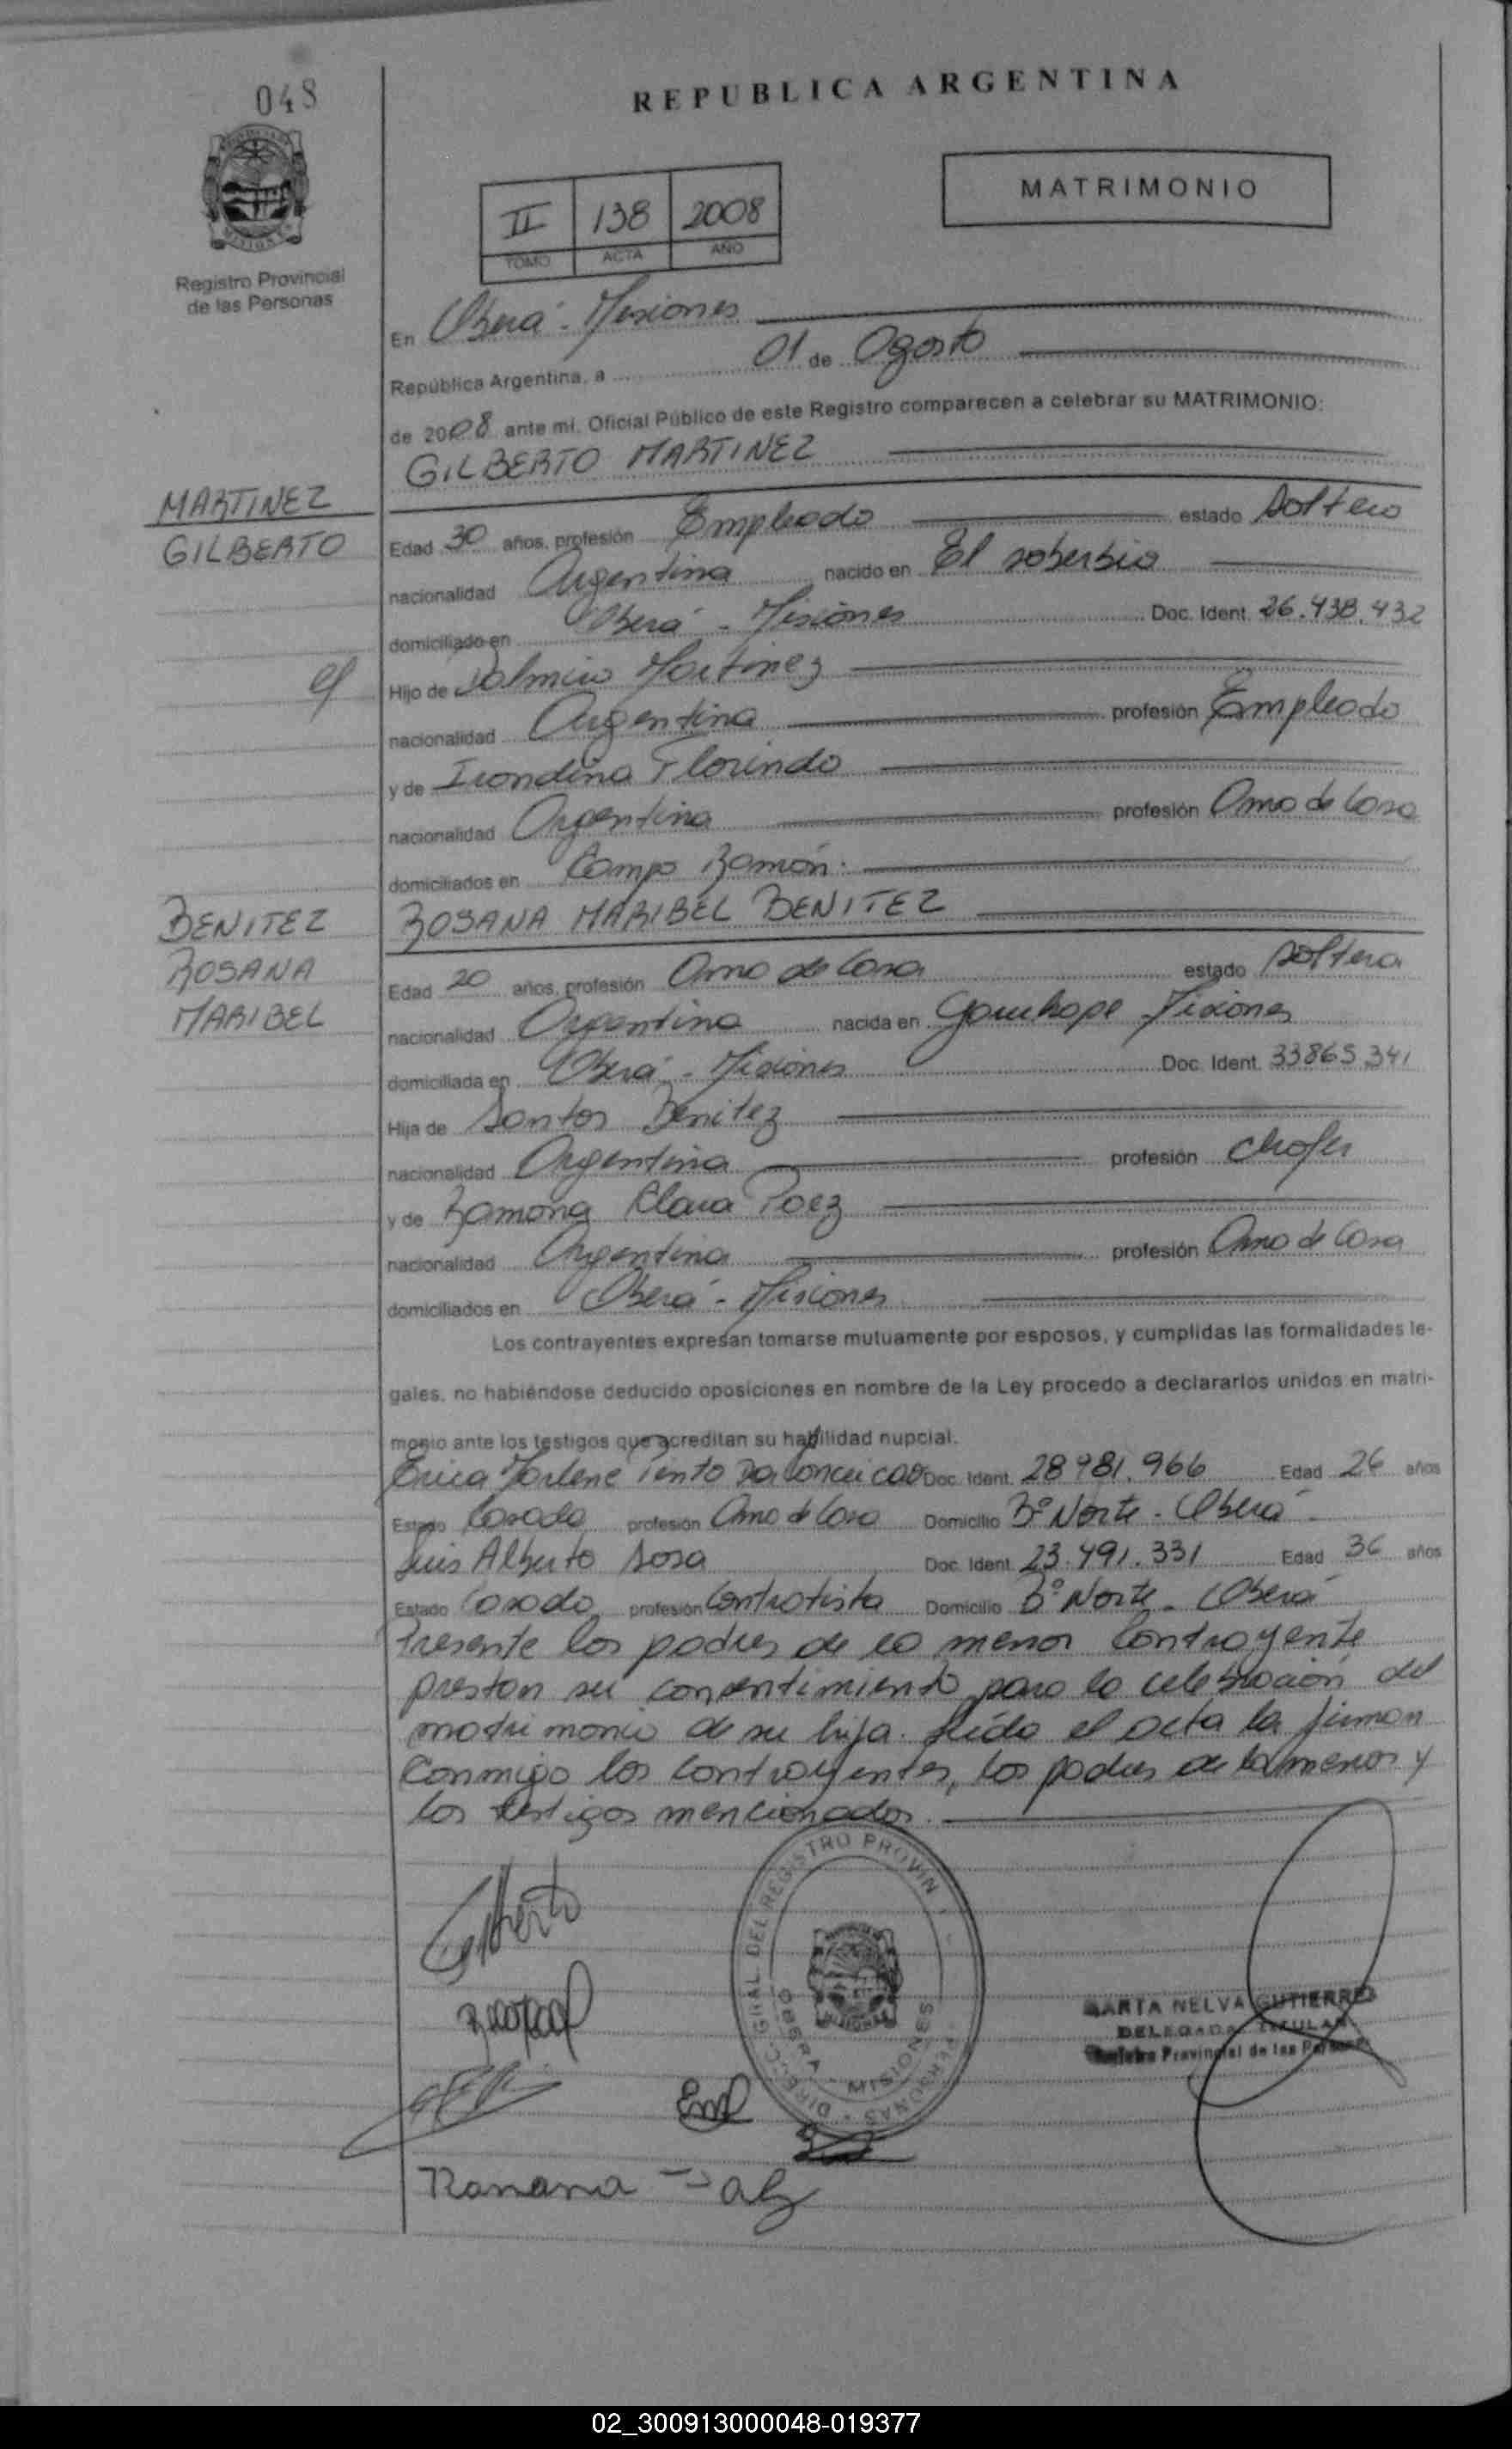 048
REPUBLICA ARGENTINA
MATRIMONIO
II 138 2008
TOMO ACTA AÑO
Registro Provincial
de las Personas
En Oberá - Misiones
República Argentina, a 01 de Agosto
de 2008 ante mi, Oficial Público de este Registro comparecen a celebrar su MATRIMONIO:
GILBERTO MARTINEZ
MARTINEZ
GILBERTO
Edad 30 años, profesión Empleado estado soltero
nacionalidad Argentina nacido en El soberbio
domiciliado en Oberá - Misiones Doc. Ident. 26.438.432
Hijo de Dalmiro Martinez
nacionalidad Argentina profesión Empleado
y de Irondina Florindo
nacionalidad Argentina profesión Ama de Casa
domiciliados en Campo Ramón.
BENITEZ
ROSANA
MARIBEL
ROSANA MARIBEL BENITEZ
Edad 20 años, profesión Ama de Casa estado soltera
nacionalidad Argentina nacida en Garuhape Misiones
domiciliada en Oberá - Misiones Doc. Ident. 33865.341
Hija de Santos Benitez
nacionalidad Argentina profesión chofer
y de Ramona Clara Paez
nacionalidad Argentina profesión Ama de Casa
domiciliados en Oberá - Misiones
Los contrayentes expresan tomarse mutuamente por esposos, y cumplidas las formalidades le-
gales, no habiéndose deducido oposiciones en nombre de la Ley procedo a declararlos unidos en matri-
monio ante los testigos que acreditan su habilidad nupcial.
Erica Marlene Pinto Da Conceicao Doc. Ident. 28981.966 Edad 26 años
Estado Casada profesión Ama de Casa Domicilio Bº Norte - Oberá
Luis Alberto Sosa Doc. Ident. 23.491.331 Edad 36 años
Estado Casado profesión Contratista Domicilio Bº Norte - Oberá
Presente los padres de la menor contrayente
prestan su consentimiento para la celebración del
matrimonio de su hija. Leída el acta la firman
Conmigo los contrayentes, los padres de la menor y
los testigos mencionados.
Gilberto
DIRECC. GRAL. DEL REGISTRO PROVIN PERSONAS
OBERA - MISIONES
MARTA NELVA GUTIERREZ
DELEGADA TITULAR
Registro Provincial de las Personas
02_300913000048-019377